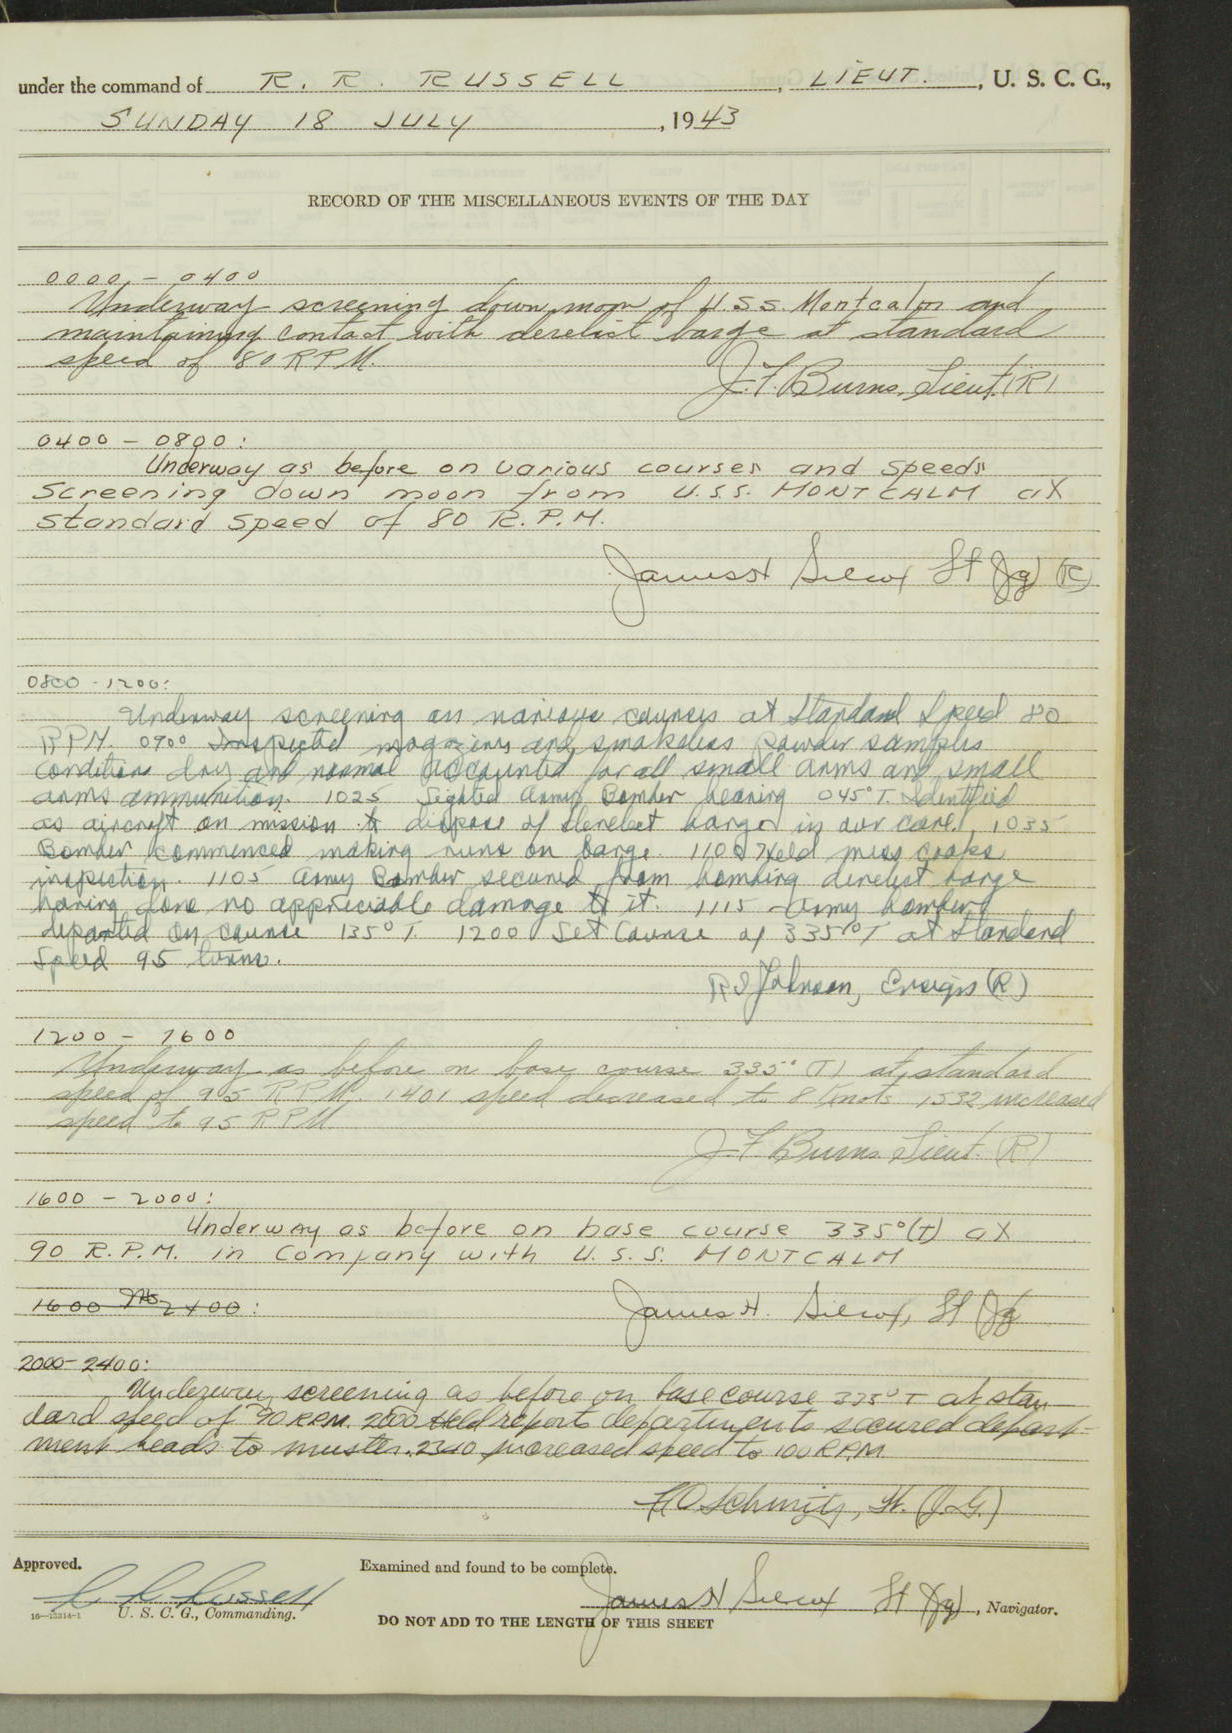 under the command of R. R. RUSSELL, LIEUT., U. S. C. G.,
SUNDAY 18 JULY, 1943
RECORD OF THE MISCELLANEOUS EVENTS OF THE DAY
0000 - 0400
Underway screening down moon of U.S.S. Montcalm and
maintaining contact with derelict barge at standard
speed of 80 RPM.
J.F. Burns, Lieut. (R)
0400 - 0800:
Underway as before on various courses and speeds
screening down moon from U.S.S. MONTCALM at
standard speed of 80 R.P.M.
James H Silcox Lt (Jg) (R)
0800 - 1200:
Underway screening on various courses at Standard Speed 80
RPM. 0900 Inspected magazines and smokeless powder samples
conditions dry and normal accounted for all small arms and small
arms ammunition. 1025 Sighted Army Bomber bearing 045° T. Identified
as aircraft on mission to dispose of derelict barge in our care. 1035
Bomber commenced making runs on barge. 1100 Held mess cooks
inspection. 1105 Army Bomber secured from bombing derelict barge
having done no appreciable damage to it. 1115 Army bomber
departed on course 135° T. 1200 Set Course of 335° T at Standard
Speed 95 turns.
Johnson, Ensign (R)
1200 - 1600
Underway as before on base course 335° (T) at standard
speed of 95 RPM. 1401 speed decreased to 8 knots 1532 increased
speed to 95 RPM
J.F. Burns Lieut. (R)
1600 - 2000:
Underway as before on base course 335°(T) at
90 R.P.M. in company with U.S.S. MONTCALM
1600 2400:
James H. Silcox, Lt (Jg
2000-2400:
Underway screening as before on base course 335° T at stan
dard speed of 90 RPM. 2000 Held report departments secured depart-
ment heads to muster. 2340 increased speed to 100 RPM.
Schmitz, Lt. (J.G.)
Approved.
Examined and found to be complete.
R R Russell
James H Silcox Lt (Jg), Navigator.
16—13314-1 U. S. C. G., Commanding.
DO NOT ADD TO THE LENGTH OF THIS SHEET